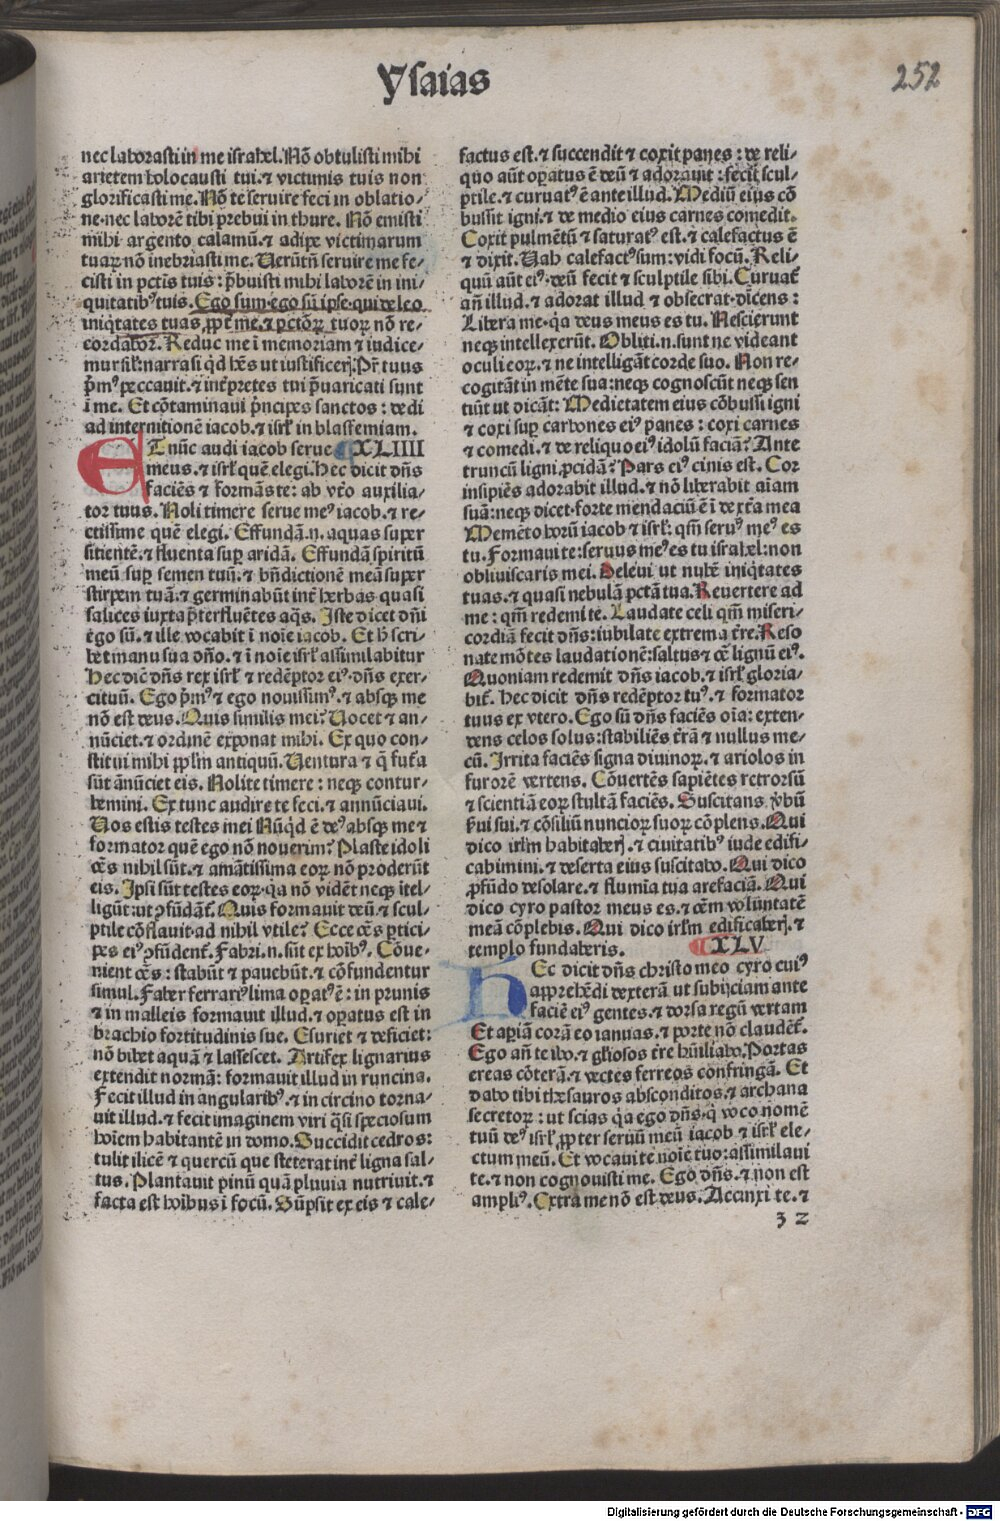 Ysaias
252
nec laborasti in me israhel. Nō obtulisti mihi
arietem holocausti tui. ⁊ victimis tuis non
glorificasti me. Nō te seruire feci in oblatio⸗
ne. nec laborē tibi prebui in thure. Nō emisti
mihi argento calamū. ⁊ adipe victimarum
tuaꝝ nō inebriasti me. Uerūtn̄ seruire me fe⸗
cisti in pctīs tuis : p̄buisti mihi laborē in ini⸗
quitatibꝰ tuis. Ego sum. ego sū ipse. qui deleo
iniq̇tates tuas. ꝓpt̄ me. ⁊ pctōꝝ tuoꝝ nō re⸗
cordaboꝛ. Reduc me ī memoriam ⁊ iudice⸗
mur sil̄: narra si q̇d hēs ut iustificeꝛj. Pr̄ tuus
p̄mꝰ peccauit. ⁊ int̄pretes tui p̄uaricati sunt
ī me. Et cōtaminaui p̄ncipes sanctos : dedi
ad internitionē iacob. ⁊ isrl̄ in blasfemiam.
ET nūc audi iacob serue ¶XLIIII
meus. ⁊ isrl̄ quē elegi. Hec dicit dn̄s
faciēs ⁊ formās te: ab vt̄o auxilia⸗
tor tuus. Noli timere serue meꝰ iacob. ⁊ re⸗
ctissime quē elegi. Effundā.n. aquas super
sitientē. ⁊ fluenta suꝑ aridā. Effundā spiritū
meū suꝑ semen tuū. ⁊ bn̄dictionē meā super
stirpem tuā. ⁊ germinabūt int̄ herbas quasi
salices iuxta p̄terfluētes aq̄s. Iste dicet dn̄i
ego sū. ⁊ ille vocabit ī noīe iacob. Et h̄ scri⸗
bet manu sua dn̄o. ⁊ ī noīe isrl̄ assimilabitur
Hec dic̄ dn̄s rex isrl̄ ⁊ redēptor eiꝰ. dn̄s exer⸗
cituū. Ego p̄mꝰ ⁊ ego nouissimꝰ. ⁊ absqꝫ me
nō est deus. Quis similis mei? Uocet ⁊ an⸗
nūciet. ⁊ ordinē exponat mihi. Ex quo con⸗
stitui mihi ppl̄m antiquū. Uentura ⁊ q̄ fut̄a
sūt ānūciet eis. Nolite timere : neqꝫ contur⸗
bemini. Ex tunc audire te feci. ⁊ annūciaui.
Uos estis testes mei Nūq̇d ē deꝰ absqꝫ me ⁊
formator quē ego nō nouerim? Plaste idoli
oēs nihil sūt. ⁊ amātissima eoꝝ nō proderūt
eis. Ipsi sūt testes eoꝝ. q̇a nō vidēt neqꝫ ītel⸗
ligūt: ut ꝓfūdāt̄. Quis formauit deū. ⁊ scul⸗
ptile cōflauit. ad nihil vtile? Ecce oēs ꝑtici⸗
pes eiꝰ ꝓfūdent̄. Fabri.n. sūt ex hoībꝰ. Cōue⸗
nient oēs : stabūt ⁊ pauebūt. ⁊ cōfundentur
simul. Faber ferrariꝰ lima oꝑatꝰ ē : in prunis
⁊ in malleis formauit illud. ⁊ oꝑatus est in
brachio fortitudinis sue. Esuriet ⁊ deficiet:
nō bibet aquā ⁊ lassescet. Artifex lignarius
extendit normā: formauit illud in runcina.
Fecit illud in angularibꝰ. ⁊ in circino torna⸗
uit illud. ⁊ fecit imaginem viri q̄si speciosum
hoīem habitantē in domo. Succidit cedros:
tulit ilicē ⁊ quercū que steterat int̄ ligna sal⸗
tus. Plantauit pinū quā pluuia nutriuit. ⁊
facta est hoībus ī focū. Sūpsit ex eis ⁊ cale⸗
factus est. ⁊ succendit ⁊ coxit panes : de reli⸗
quo aūt oꝑatus ē deū ⁊ adorauit : fecit scul⸗
ptile. ⁊ curuatꝰ ē ante illud. Mediū eius cō
bussit igni. ⁊ de medio eius carnes comedit.
Coxit pulmētū ⁊ saturatꝰ est. ⁊ calefactus ē
⁊ dixit. Uah calefactꝰ sum: vidi focū. Reli⸗
quū aūt eiꝰ. deū fecit ⁊ sculptile sibi. Curuat̄
an̄ illud. ⁊ adorat illud ⁊ obsecrat. dicens :
Libera me. q̇a deus meus es tu. Nescierunt
neqꝫ intellexerūt. Obliti.n. sunt ne videant
oculi eoꝝ. ⁊ ne intelligāt corde suo. Non re⸗
cogitāt in mēte sua: neqꝫ cognoscūt neqꝫ sen
tiūt ut dicāt: Medietatem eius cōbussi igni
⁊ coxi suꝑ carbones eiꝰ panes : coxi carnes
⁊ comedi. ⁊ de reliquo eiꝰ idolū faciā? Ante
truncū ligni ꝓcidā? Pars eiꝰ cinis est. Cor
insipiēs adorabit illud. ⁊ nō liberabit aīam
suā: neqꝫ dicet. forte mendaciū ē ī dext̄a mea
Memēto horū iacob ⁊ isrl̄: qm̄ seruꝰ meꝰ es
tu. Formaui te: seruus meꝰ es tu israhel: non
obliuiscaris mei. Deleui ut nubē iniq̇tates
tuas. ⁊ quasi nebulā pctā tua. Reuertere ad
me : qm̄ redemi te. Laudate celi qm̄ miseri⸗
cordiā fecit dn̄s: iubilate extrema t̄re. Reso
nate mōtes laudationē: saltus ⁊ oē lignū eiꝰ.
Quoniam redemit dn̄s iacob. ⁊ isrl̄ gloria⸗
bit̄. Hec dicit dn̄s redēptor tuꝰ. ⁊ formator
tuus ex vtero. Ego sū dn̄s faciēs oīa: exten⸗
dens celos solus: stabiliēs t̄rā ⁊ nullus me⸗
cū. Irrita faciēs signa diuinoꝝ. ⁊ ariolos in
furorē vertens. Cōuertēs sapiētes retrorsū
⁊ scientiā eoꝝ stultā faciēs. Suscitans v̄bū
s̄ui sui. ⁊ cōsiliū nuncioꝝ suoꝝ cōplens. Qui
dico irl̄m habitabeꝛj. ⁊ ciuitatibꝰ iude edifi⸗
cabimini. ⁊ deserta eius suscitabo. Qui dico
ꝓfūdo desolare. ⁊ flumīa tua arefaciā. Qui
dico cyro pastor meus es. ⁊ oēm volūtatē
meā cōplebis. Qui dico irl̄m edificabeꝛj. ⁊
templo fundaberis. ¶XLV
HEc dicit dn̄s christo meo cyro cuiꝰ
apprehēdi dexterā ut subijciam ante
faciē eiꝰ gentes. ⁊ dorsa regū vertam
Et aꝑiā corā eo ianuas. ⁊ porte nō claudēt̄.
Ego an̄ te ibo. ⁊ gl̄iosos t̄re hūiliabo. Portas
ereas cōterā. ⁊ vectes ferreos confringā. Et
dabo tibi thesauros absconditos. ⁊ archana
secretoꝝ : ut scias q̇a ego dn̄s. q̇ voco nomē
tuū deꝰ isrl̄ ꝓpter seruū meū iacob ⁊ isrl̄ ele⸗
ctum meū. Et vocaui te noīe tuo: assimilaui
te. ⁊ non cognouisti me. Ego dn̄s. ⁊ non est
ampliꝰ. Extra me nō est deus. Accinxi te. ⁊
3 2
Digitalisierung gefördert durch die Deutsche Forschungsgemeinschaft - DFG